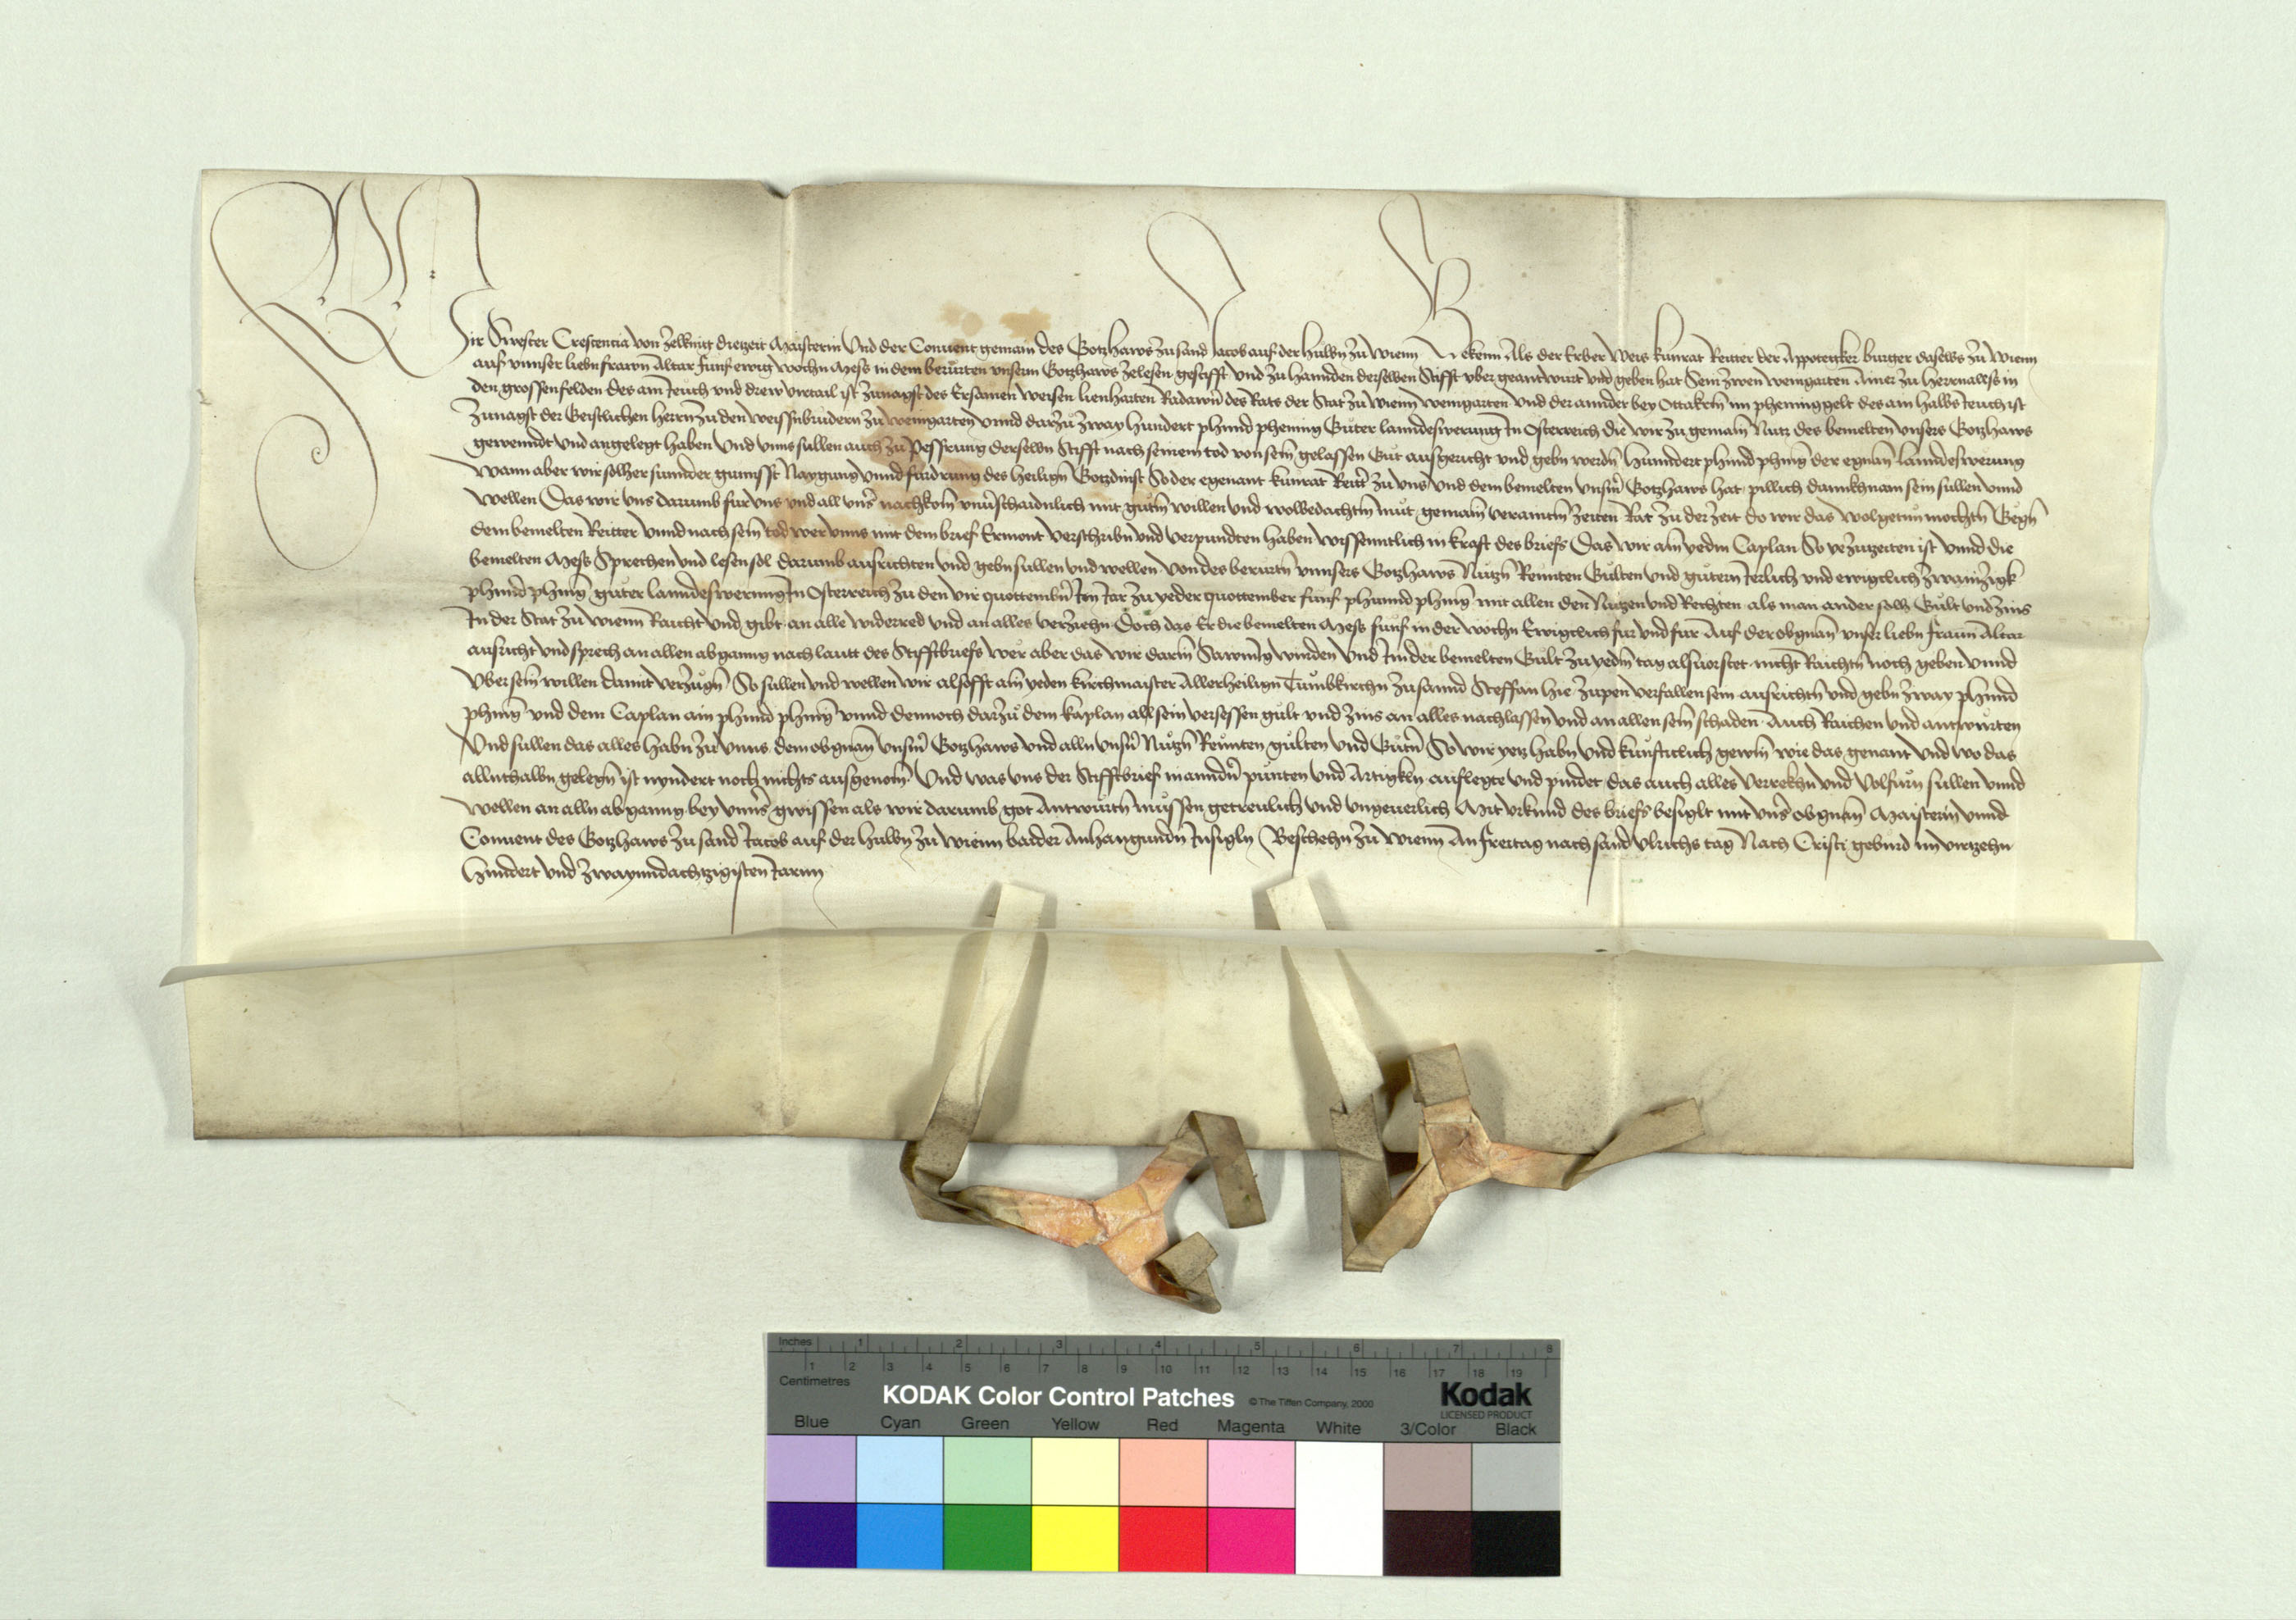 Wir Swester Crescencia von Zelkingt dietzeit Maisterin Und der Conuent gemain des Gotzhaws zu sand Jacob auf der hulbn zu Wienn Bekenn Als der Erber Weis kunrat Reitter der Appotegker burger daselbs zu Wienn
auf vnnser liebn frawn Altar funf ewig wochn Mess in dem berurten vnserm Gotzhaws zelesen gestifft vnd zu hannden derselben Stifft vber geantwurt vnd geben hat Sein zwen weingarten Ainer zu herrnallss in
den grossenfelden des ain Jeuch vnd drew virtail ist zunagst des Ersamen weisen lienharten Radawn des Rats der Stat zu Wienn weingarten vnd der annder bey Ottakrin im pheninggelt des ain halbs Jeuch ist
zunagst der Geistlichen herrn zu den weissnbrudern zu weingarten vnnd darzu zway hundert phund phening Guter lanndeswerung In Osterreich die wir zu gemain Nutz des bemelten vnsers Gotzhaws
gewenndt vnd angelegt haben Und vnns sullen auch zu Pessrung derselbn Stifft nach seinem tod von seim gelassen Gut ausgericht vnd gebn werdn hunndert phund phing der egnan lanndeswerung
Wann aber wir solher sunnder gunsst Naygung vnnd furdrung des heilign Gotzdinst So der egenant kunrat Reitter zu vns vnd dem bemelten vnserm Gotzhaws hat pillich dannkhnam sein sullen vnnd
wellen Das wir vns darumb fur vns vnd all vnser nachkom vnuerschaidnlich mit gutm willen vnd wolbedachtm mut gemaim veraintm zeiten Rat zu der zeit do wir das wolgetun mochtn Gegn
dem bemelten Reitter vnnd nach seim tod wer vnns mit dem brief Ermont verschribn vnd verpundten haben wissenntlich in kraft des briefs Das wir aim yedm Caplan So ye zuzeiten ist vnnd die
bemelten Mess Sprechen vnd lesen sol darumb ausrichten vnd gebn sullen vnd wellen von des berurtn vnnsers Gotzhaws Nutzn Rennten Gulten vnd gutern Jerlich vnd ewigclich zwainzigk
phund phing guter lanndeswerung In Osterreich zu den vir quottembern Im Jar zu yeder quottember funf phunnd phing mit allen den Nutzen vnd Rechten als man ander solh Gult vnd zins
In der Stat zu wienn Raicht vnd gibt an alle widerred vnd an alles verziehn Doch das Er die bemelten Mess funf in der wochn Ewigclich fur vnd fur Auf der obgnan vnser liebn frawn Altar
ausricht vnd sprech an allen abganng nach lautt des Stifftbriefs wer aber das wir darin Sawmig wurden Und In der bemelten Gult zu yedm tag als vorstet nicht Raichtn noch geben vnnd
Vber seim willen damit verzugn So sullen vnd wellen wir alsofft aim yeden kirchmaister Allerheilign Tumbkirchn zu sannd Steffan hie zu pen verfallen sein ausrichtn vnd gebn zway phund
phing vnd dem Caplan ain phund phing vnnd dennoch darzu dem kaplan all sein versessen gult vnd zins an alles nachlassen vnd an allen seim schaden Auch Raichen vnd antwurten
Und sullen das alles habn zu vnns dem obgnan vnserm Gotzhaws vnd alln vnsern Nutzn Rennten gulten vnd Gutern So wir yetz habn vnd kunfticlich gewin wie das genant vnd wo das
allnthalbn gelegn ist nyndert noch nichts ausgenom Und was vns der Stifftbrief in anndern punten vnd Artigkln auflegte vnd pindet das auch alles verrekhn vnd Volfurn sullen vnnd
wellen an alln abganng bey vnnser gwissen als wir darumb got Antwurtn mussen getreulich vnd vngeuerlich Mit vrkund des briefs besiglt mit vnser obgnan Maisterin vnnd
Conuent des Gotzhaws zu sand Jacob auf der hulbn zu wienn baider Anhangundn Insigln Beschehn zu wienn An freitag nach sand vlrichs tag Nach Cristi geburd im virtzehn
hundert vnd zwayundachtzigisten Jarnn
Inches 1 2 3 4 5 6 7 8
1 2 3 4 5 6 7 8 9 10 11 12 13 14 15 16 17 18 19
Centimetres
KODAK Color Control Patches © The Tiffen Company, 2000 Kodak
LICENSED PRODUCT
Blue Cyan Green Yellow Red Magenta White 3/Color Black